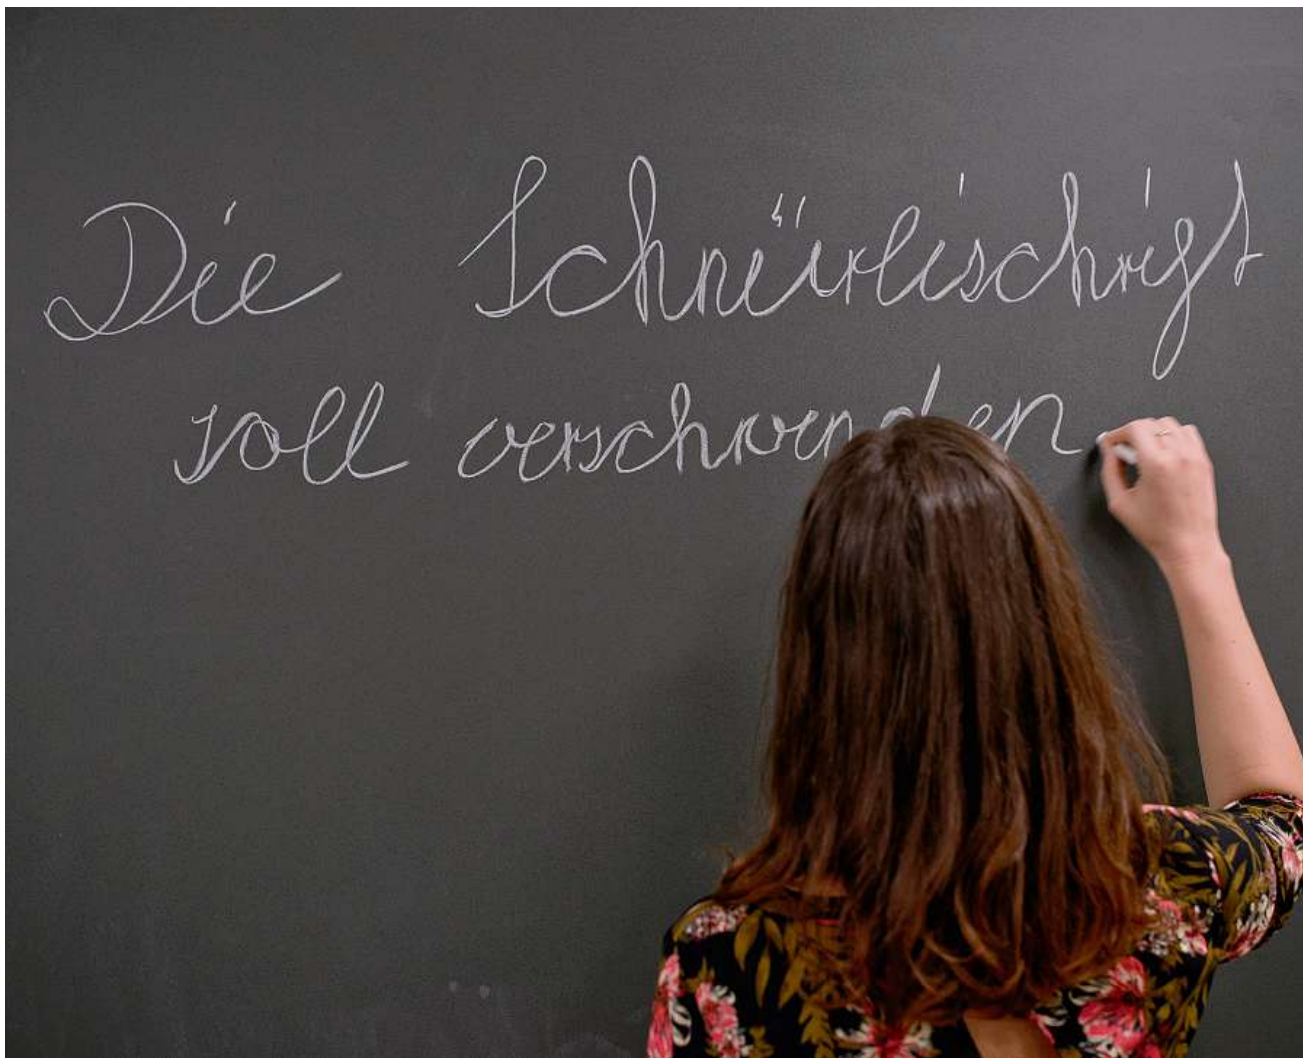 Die Schnürlischrift
soll verschwinden